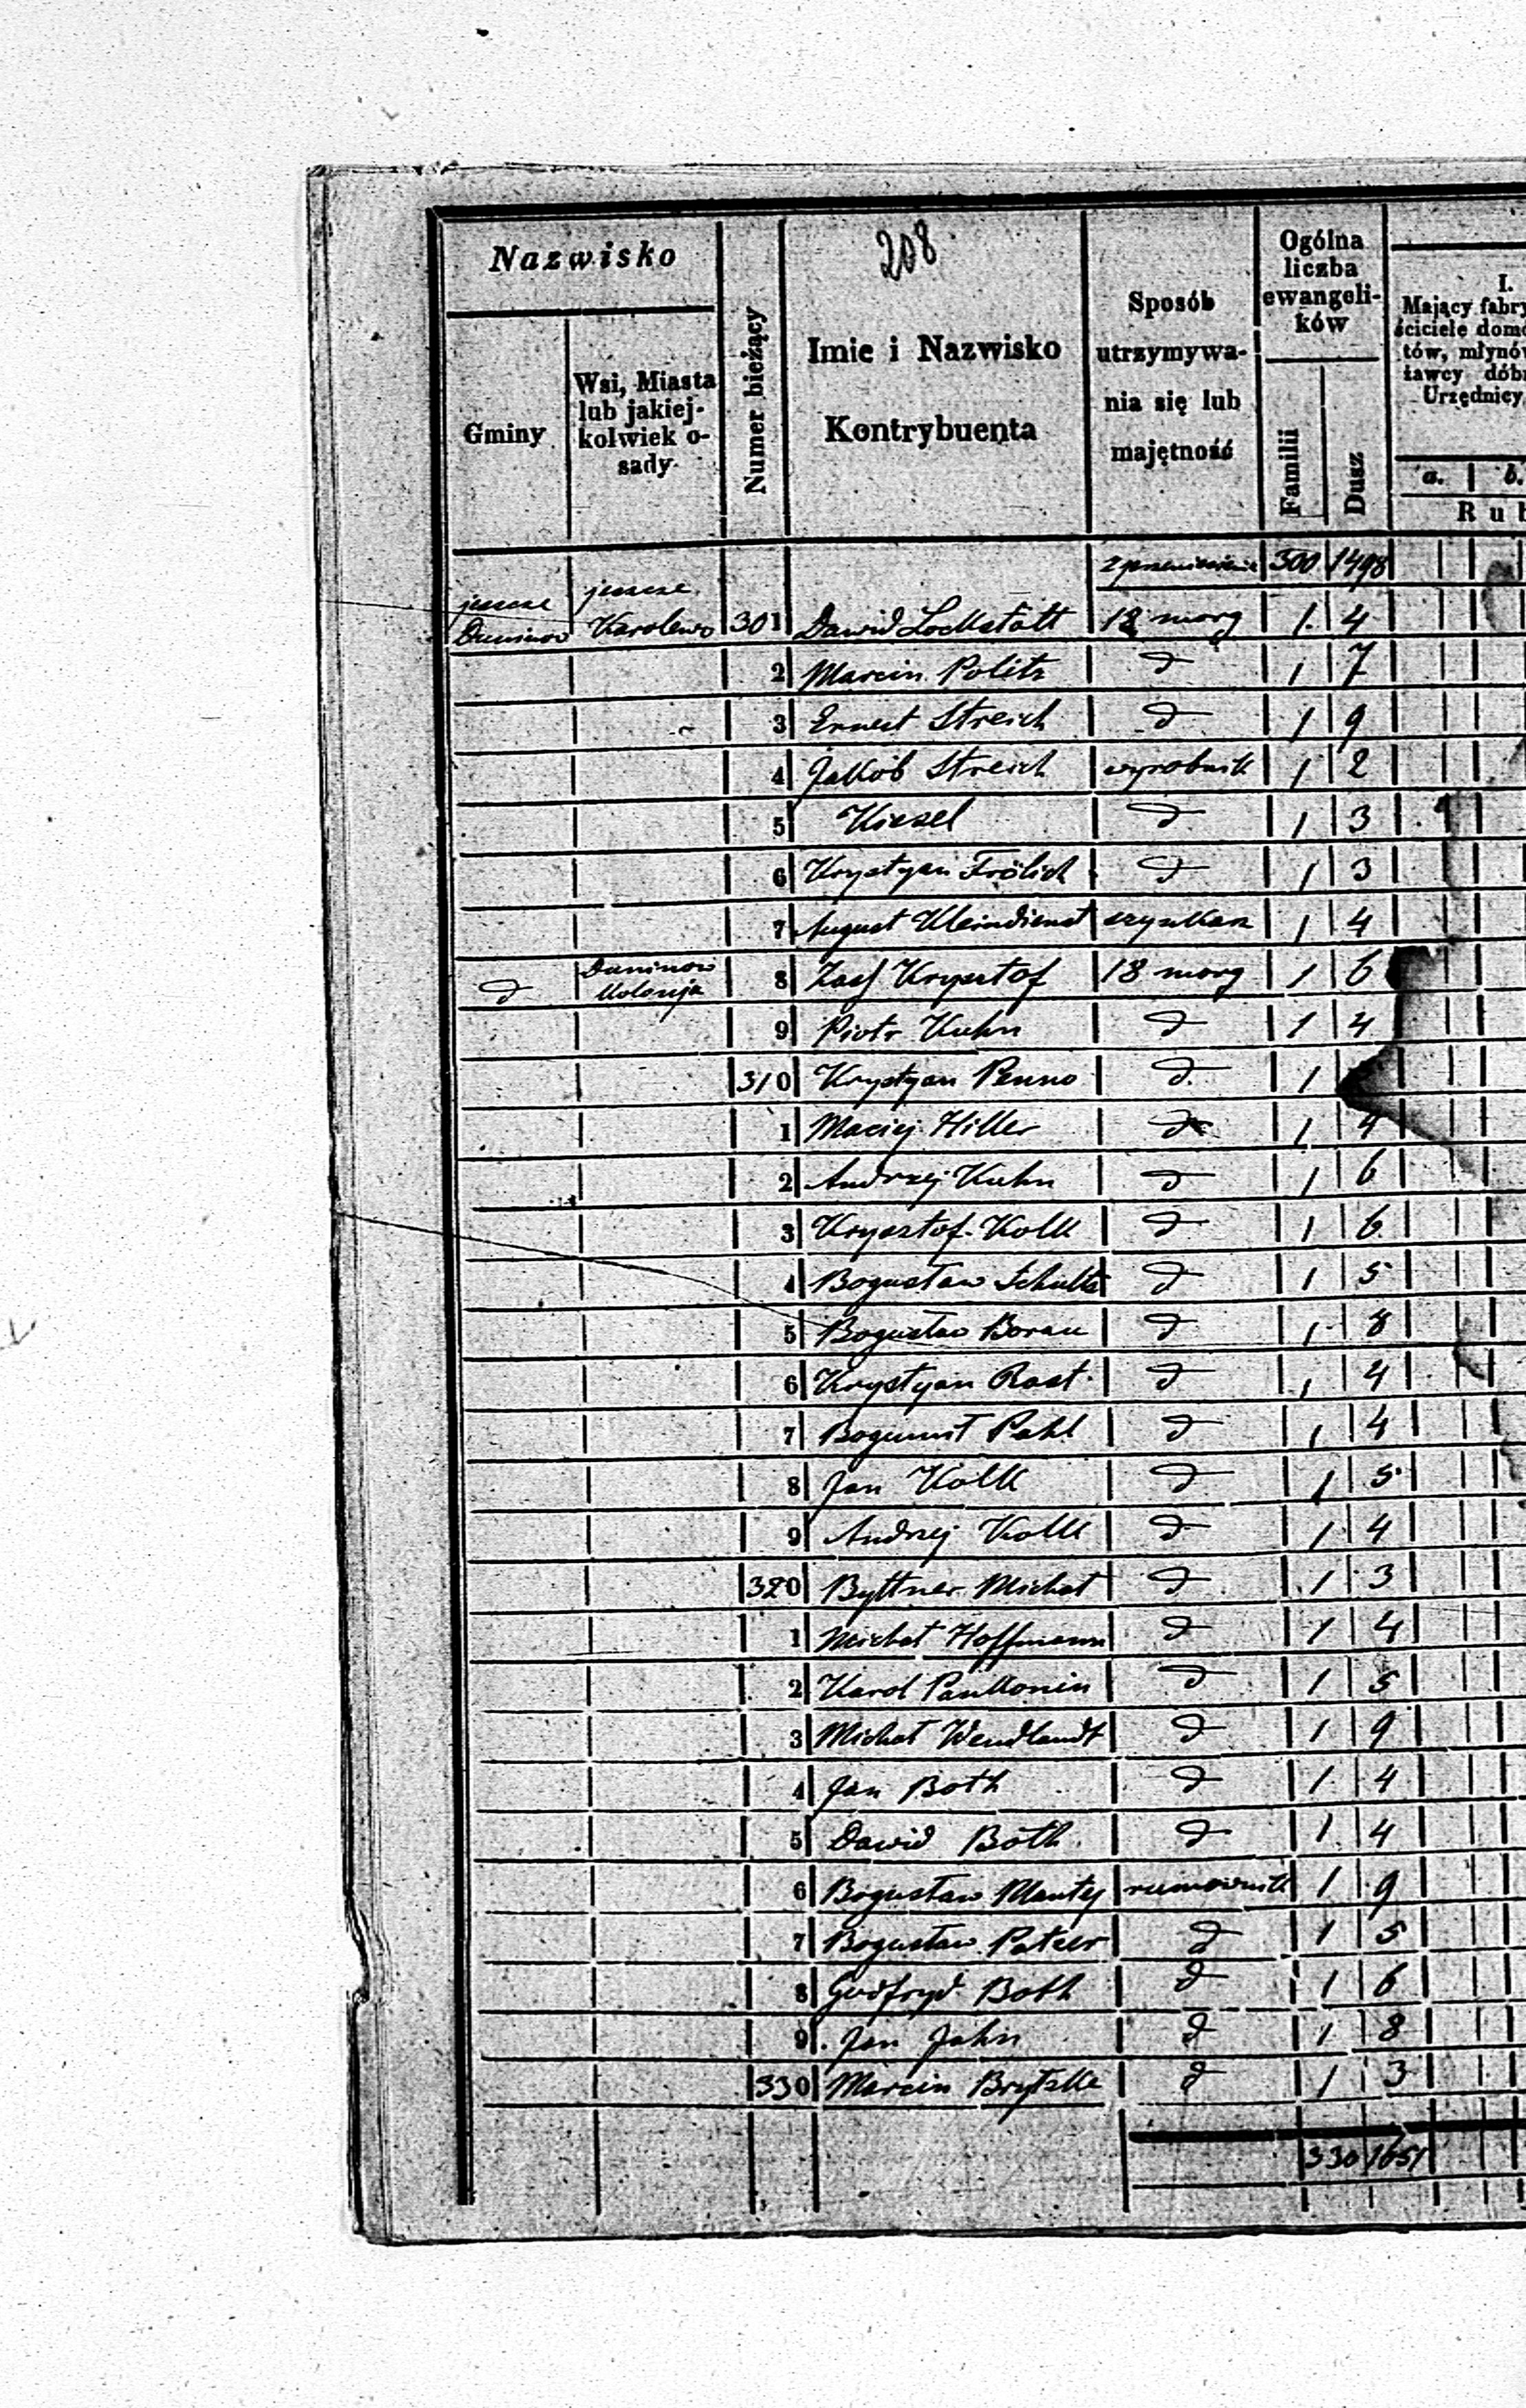 208
Nazwisko
Gminy
Wsi, Miasta
lub jakiej-
kolwiek o-
sady.
Numer bieżący
Imie i Nazwisko
Kontrybuenta
Sposób
utrzymywa-
nia się lub
majętność
Ogólna
liczba
ewangeli-
ków
Familii
Dusz
I.
Mający fabry
ściciele domó
tów, młynów
żawcy dóbr
Urzędnicy
a. b.
Rub
z przeniesienia 300 1498
jeszcze jeszcze
Duninow Karolewo 301 Dawid Lockstätt 18 morg 1 4
2 Marcin Politz d 1 7
3 Ernest Streich d 1 9
4 Jakób Streich wyrobnik 1 2
5 Kiesel d 1 3
6 Krystyan Frölich d 1 3
7 August Kleindienst szynkarz 1 4
d Duninow Kolonija 8 Krysztof 18 morg 1 6
9 Piotr Kuhn d 1 4
310 Krystyan Penno d 1
1 Maciej Hiller d 1 4
2 Andrzej Kuhn d 1 6
3 Krysztof Kolk d 1 6
4 Bogusław Schultz d 1 5
5 Bogusław Borau d 1 8
6 Krystyan Rast d 1 4
7 Bogumił Pahl d 1 4
8 Jan Kolk d 1 5
9 Andrzej Kolk d 1 4
320 Byttner Michał d 1 3
1 Michał Hoffmann d 1 4
2 Karol Pankonin d 1 5
3 Michał Wendlandt d 1 9
4 Jan Both d 1 4
5 Dawid Both d 1 4
6 Bogusław Mantey rumownik 1 9
7 Bogusław Patzer d 1 5
8 Godfryd Both d 1 6
9 Jan Jahn d 1 8
330 Marcin Brytzke d 1 3
330 1651